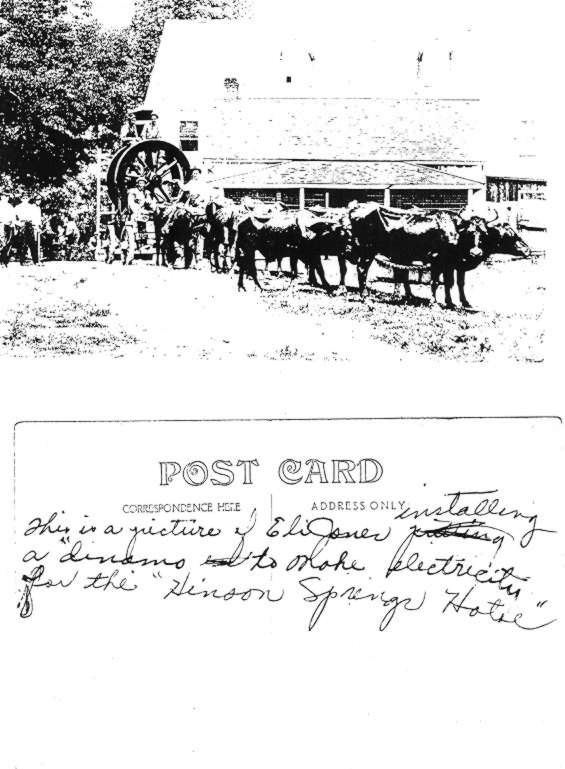 POST CARD
CORRESPONDENCE HERE
ADDRESS ONLY
This is a picture of Eli Jones installing
a "dinamo to make electricity
for the "Hinson Springs Hotse"